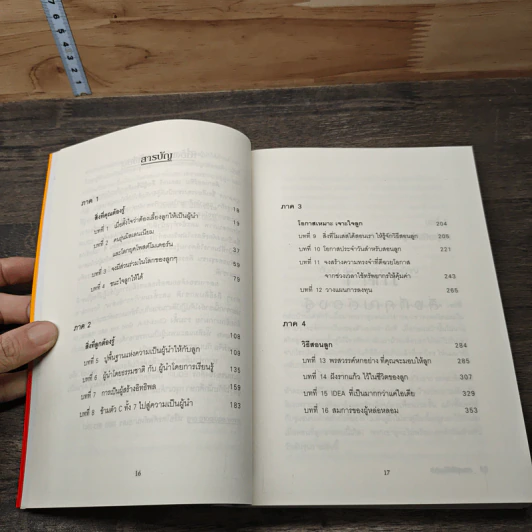 สารบัญ
ภาค 1
สิ่งที่คุณต้องรู้ 18
บทที่ 1 เมื่อตั้งใจว่าต้องเลี้ยงลูกให้เป็นผู้นำ 19
บทที่ 2
และโลกยุคโพสต์โมเดอร์น 37
บทที่ 3 จงมีส่วนร่วมในโลกของลูกๆ 59
บทที่ 4 ชนะใจลูกให้ได้ 79
ภาค 2
สิ่งที่ลูกต้องรู้ 108
บทที่ 5 ปูพื้นฐานแห่งความเป็นผู้นำให้กับลูก 109
บทที่ 6 ผู้นำโดยธรรมชาติ กับ ผู้นำโดยการเรียนรู้ 135
บทที่ 7 การเป็นผู้สร้างอิทธิพล 159
บทที่ 8 ข้ามตัว C ทั้ง 7 ไปสู่ความเป็นผู้นำ 183
16
ภาค 3
โอกาสเหมาะ เจาะใจลูก 204
บทที่ 9 สิ่งที่โมเสสได้สอนเรา ให้รู้จักวิธีสอนลูก 205
บทที่ 10 โอกาสประจำวันสำหรับสอนลูก 221
บทที่ 11 จงสร้างความทรงจำที่ดีฉวยโอกาส
จากช่วงเวลาใช้ทรัพยากรให้คุ้มค่า 243
บทที่ 12 วางแผนการลงทุน 265
ภาค 4
วิธีสอนลูก 284
บทที่ 13 พรสวรรค์หกอย่าง ที่คุณจะมอบให้ลูก 285
บทที่ 14 ฝังรากแก้ว ไว้ในชีวิตของลูก 307
บทที่ 15 IDEA ที่เป็นมากกว่าแค่ไอเดีย 329
บทที่ 16 สมการของผู้หล่อหลอม 353
17
7 6 5 4 3 2 1